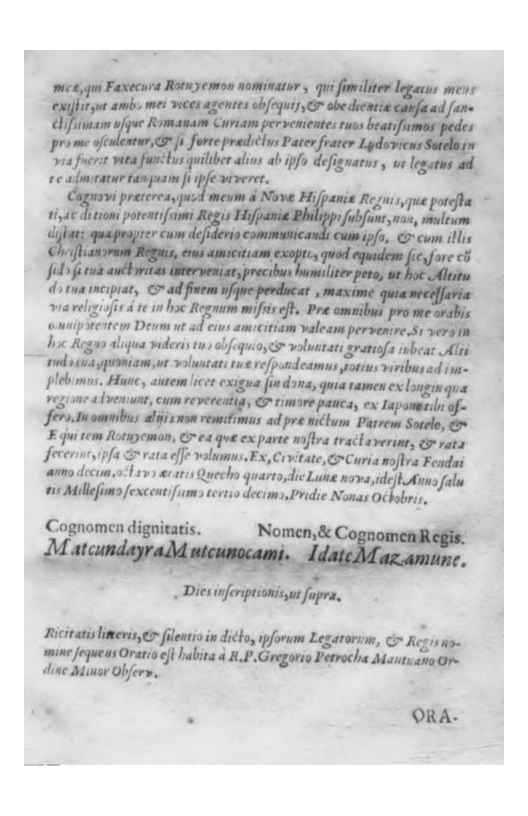 meæ, qui Faxecura Rotuyemon nominatur, qui similiter legatus meus
existit, ut ambo mei vices agentes obsequij, & obedientiæ causa ad san-
ctissimam usque Romanam Curiam pervenientes tuos beatissimos pedes
pro me osculentur, & si forte prædictus Pater frater Ludovicus Sotelo in
via fuerit vita functus quilibet alius ab ipso designatus, ut legatus ad
te admitatur tanquam si ipse viveret.
Cognovi præterea, quod meum à Novæ Hispaniæ Regnis, quæ potesta
ti, ac ditioni potentissimi Regis Hispaniæ Philippi subsunt, non, multum
distat: quapropter cum desiderio communicandi cum ipso, & cum illis
Christianorum Regnis, eius amicitiam exopto, quod equidem sic, fore cō
fido si tua auctoritas interveniat, precibus humiliter peto, ut hoc Altitu
do tua incipiat, & ad finem usque perducat, maxime quia necessaria
via religiosis à te in hoc Regnum missis est. Præ omnibus pro me orabis
omnipotentem Deum ut ad eius amicitiam valeam pervenire. Si vero in
hoc Regno aliqua videris tuo obsequio, & voluntati gratiosa iubeat Alti
tudo sua, quoniam, ut voluntati tuæ respondeamus, totius viribus ad im-
plebimus. Hunc, autem licet exigua sin dona, quia tamen ex longinqua
regione adveniunt, cum reverentia, & timore pauca, ex Iapone tibi of-
fero. In omnibus alijs non remitimus ad prænictum Patrem Sotelo, &
Equitem Rotuyemon, & ea quæ ex parte nostra tractaverint, & rata
fecerint, ipsa & rata esse volumus. Ex, Civitate, & Curia nostra Fendai
anno decim, octavo ætatis Quecho quarto, die Lunæ nova, idest, Anno salu
tis Millesimo sexcentisimo tertio decimo. Pridie Nonas Octobris.
Cognomen dignitatis. Nomen, & Cognomen Regis.
MatcundayraMutcunocami. IdateMazamune.
Dies inscriptionis, ut supra.
Ricitatis literis, & silentio in dicto, ipsorum Legatorum, & Regis no-
mine sequens Oratio est habita à R.P. Gregorio Petrocha Mantuano Or-
dine Minor Observ.
ORA-